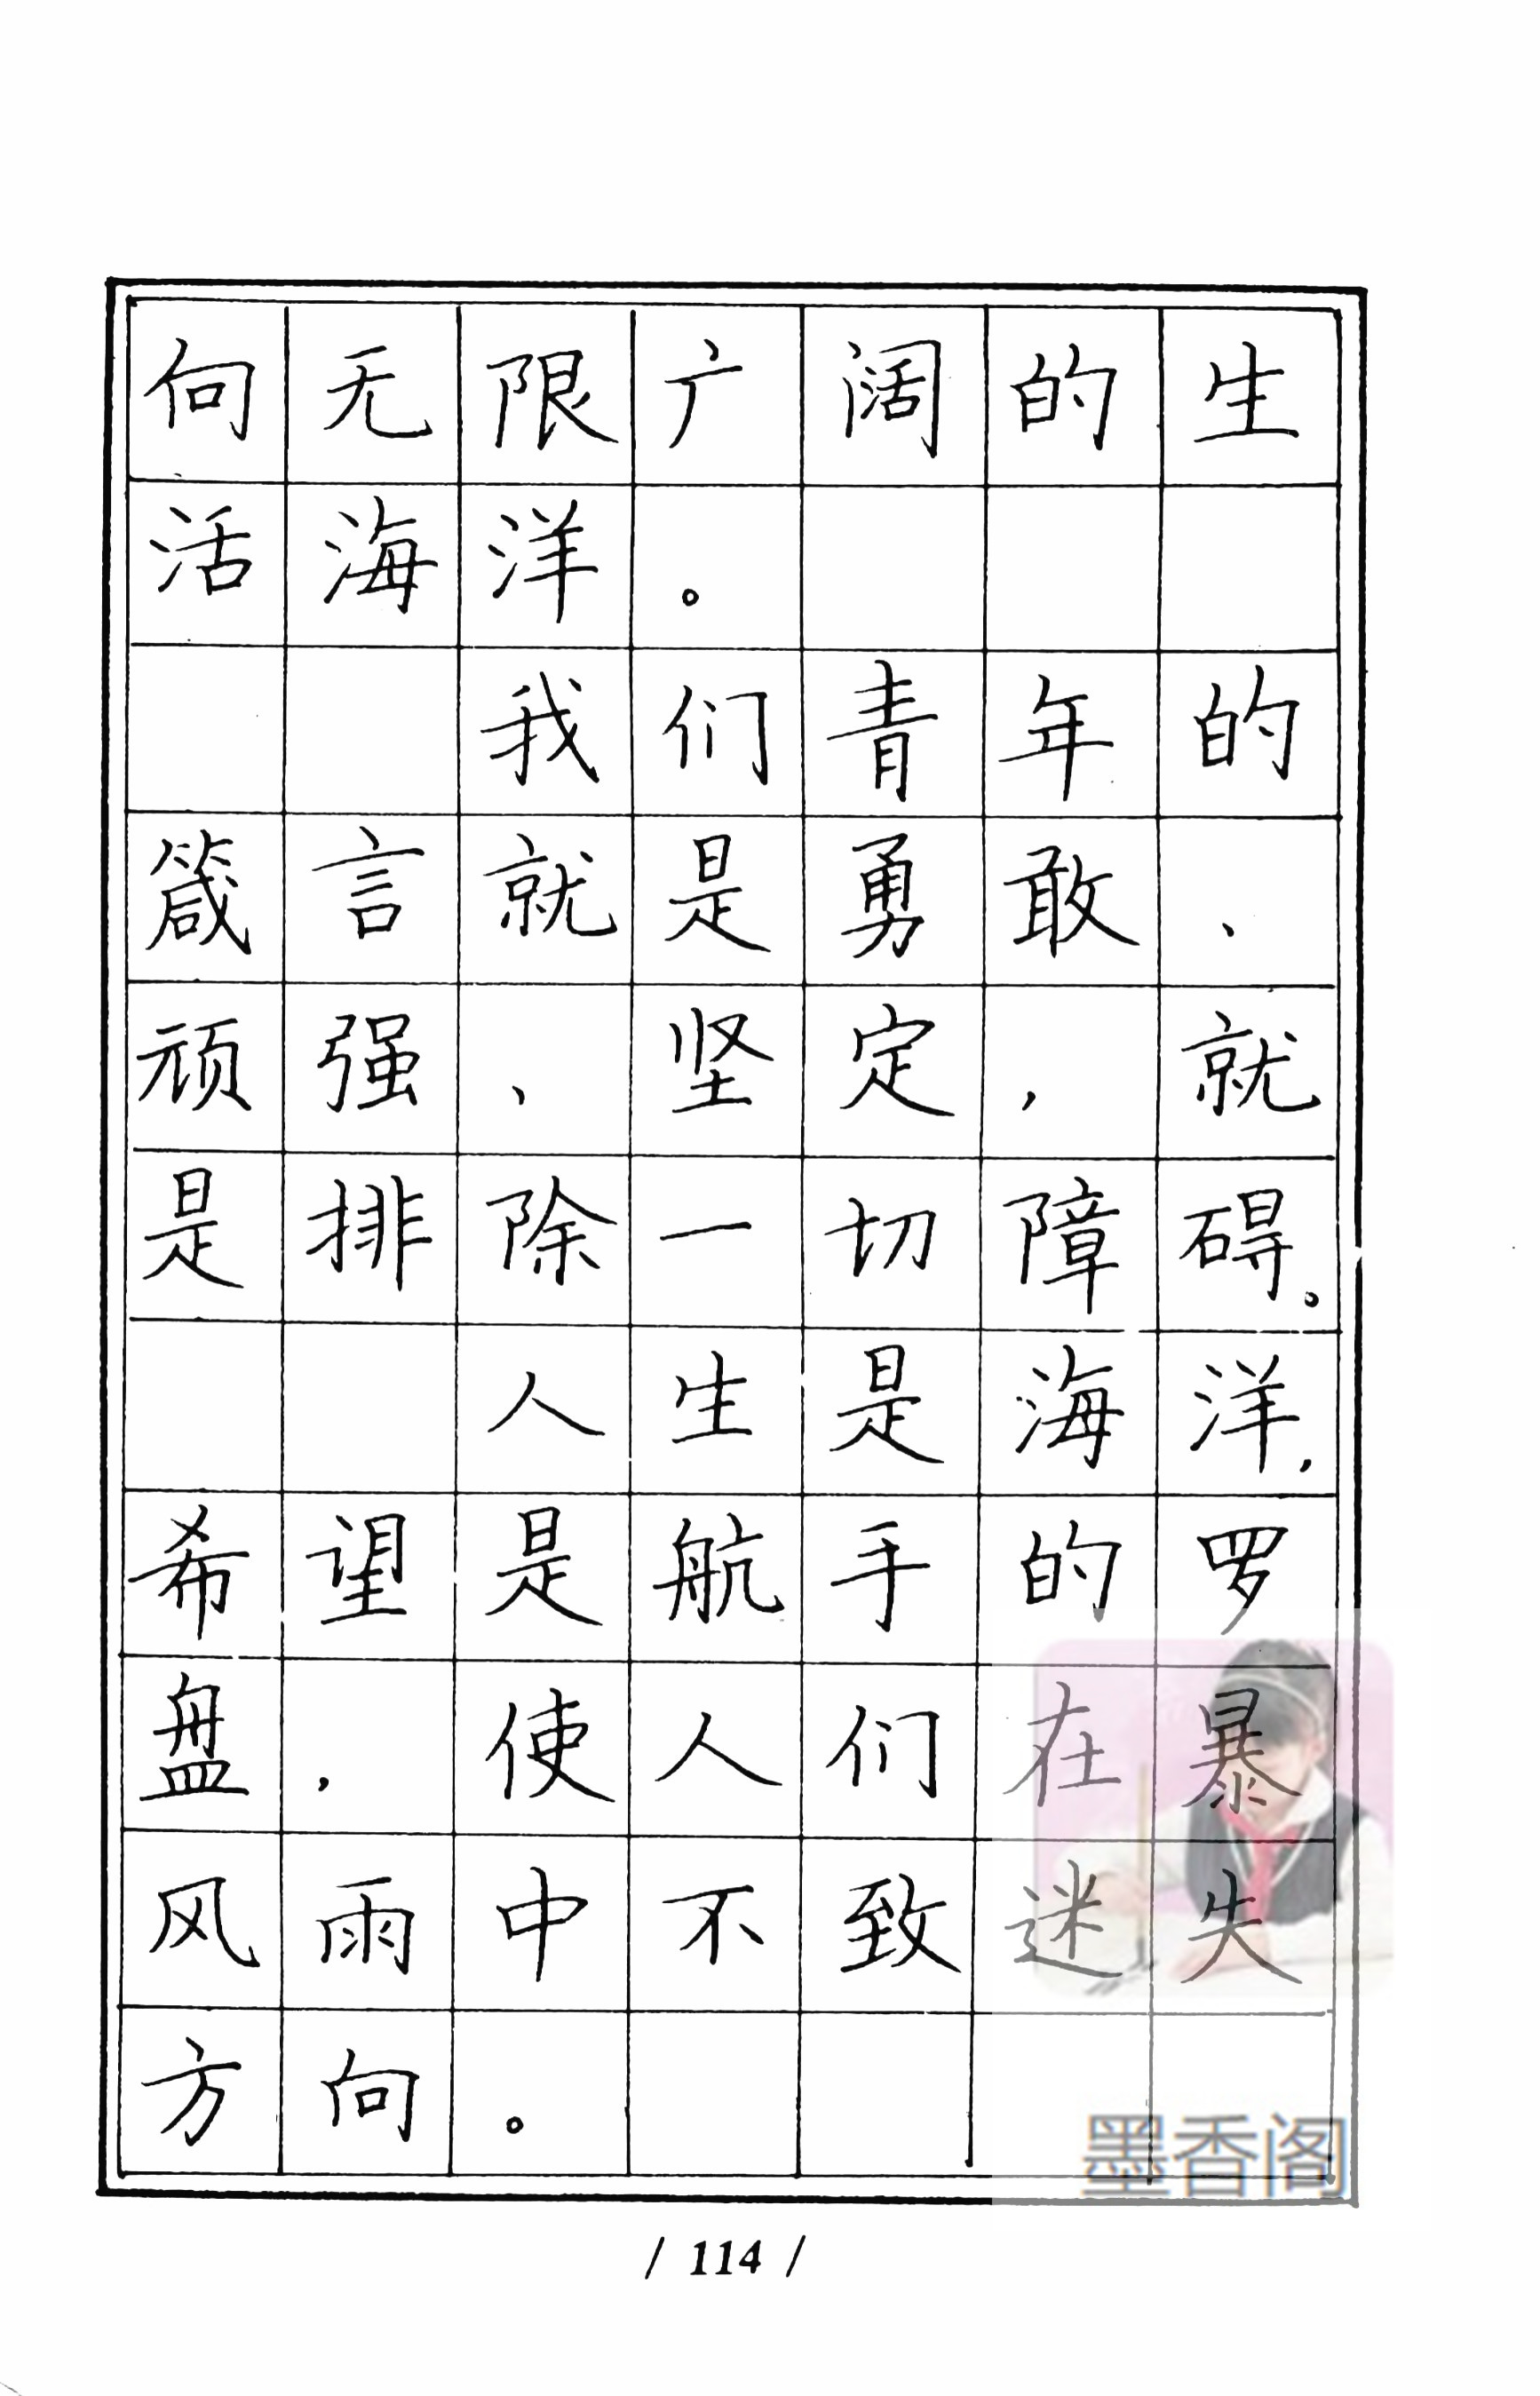 向无限广阔的生
活海洋。
我们青年的
箴言就是勇敢、
顽强、坚定，就
是排除一切障碍。
人生是海洋，
希望是航手的罗
盘，使人们在暴
风雨中不致迷失
方向。
墨香阁
/ 114 /